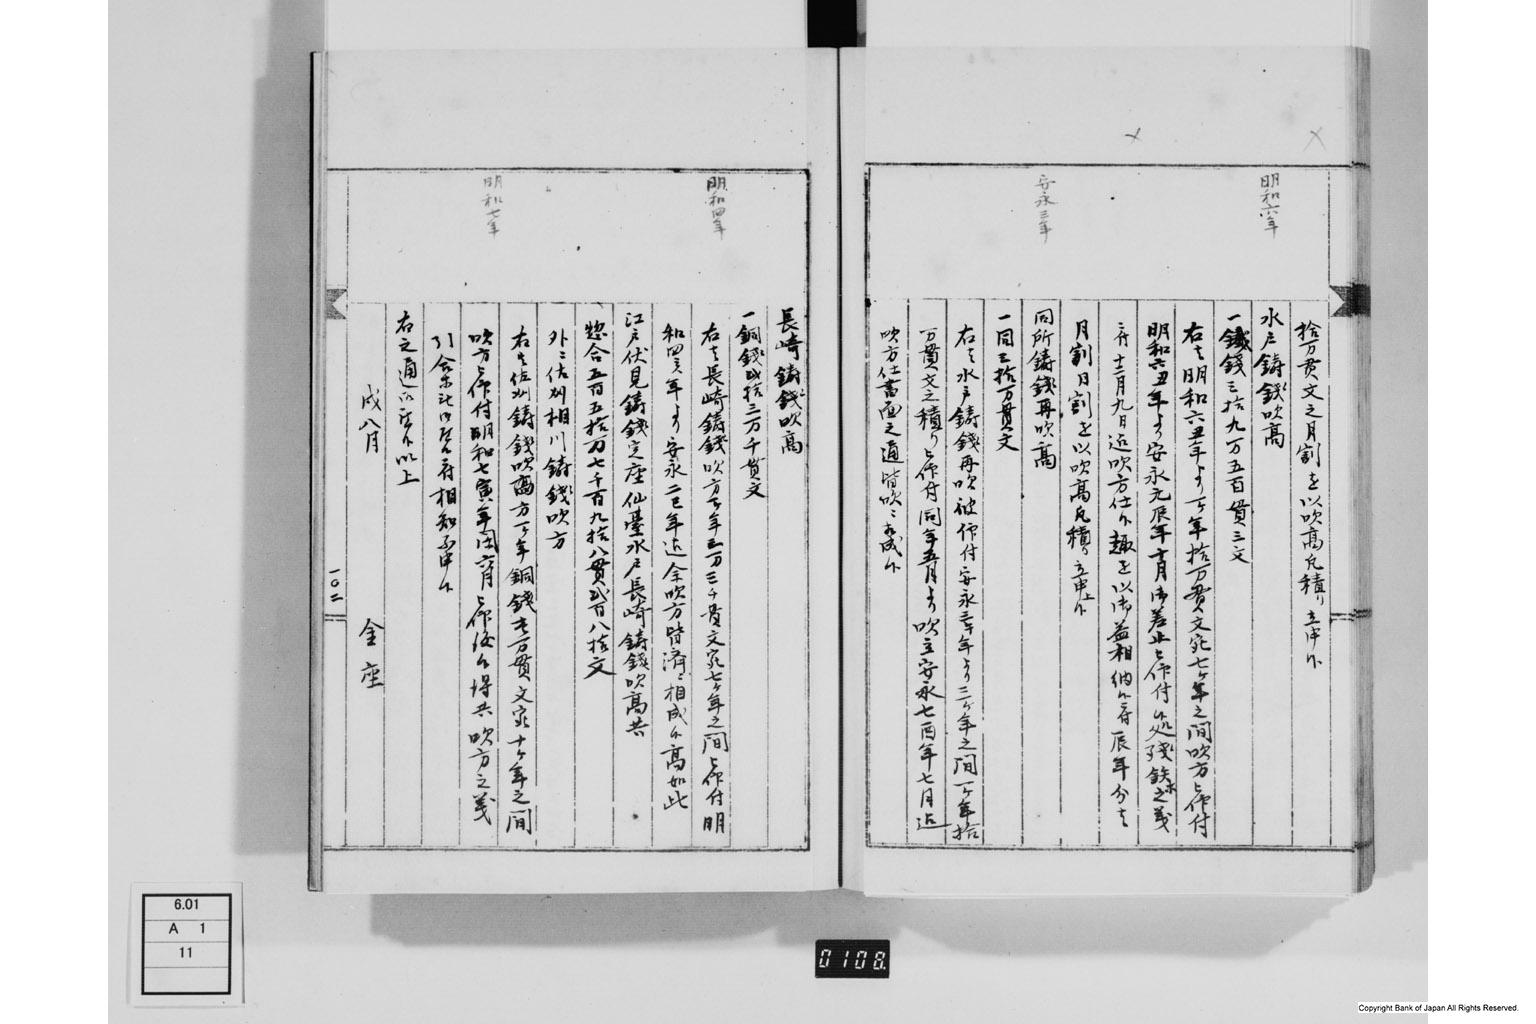 明和六年
拾万貫文之月割を以吹高凡積り立申候
水戸鋳銭吹高
一鐵銭三拾九万五百貫三文
右者明和六丑年より一ヶ年拾万貫文宛七ヶ年之間吹方被仰付
明和六丑年より安永元辰年十月御差止被仰付候処残鉄之義
十二月九日迄吹方仕候趣を以御益相納候ニ付辰年分者
月割日割を以吹高凡積り立申上候
安永三年
同所鋳銭再吹高
一同三拾万貫文
右者水戸鋳銭再吹被仰付安永三年より三ヶ年之間一ヶ年拾
万貫文之積り被仰付同年五月より吹立安永七酉年七月迄
吹方仕書面之通皆吹ニ相成候
明和四年
長崎鋳銭吹高
一銅銭弐拾三万千貫文
右者長崎鋳銭吹方一ヶ年三万三千貫文宛七ヶ年之間被仰付明
和四亥年より安永二巳年迄全吹方皆済ニ相成候高如此
江戸伏見鋳銭定座仙臺水戸長崎鋳銭吹高共
惣合五百五拾万七千百九拾八貫弐百八拾文
明和七年
外ニ佐州相川鋳銭吹方
右者佐州鋳銭吹高方一ヶ年銅銭壱万貫文宛十ヶ年之間
吹方被仰付明和七寅年閏六月被仰渡候得共吹方之義
引合無之候ニ付相知不申候
右之通御座候以上
戌八月
金座
一〇二
6.01
A 1
11
0108.
Copyright Bank of Japan All Rights Reserved.